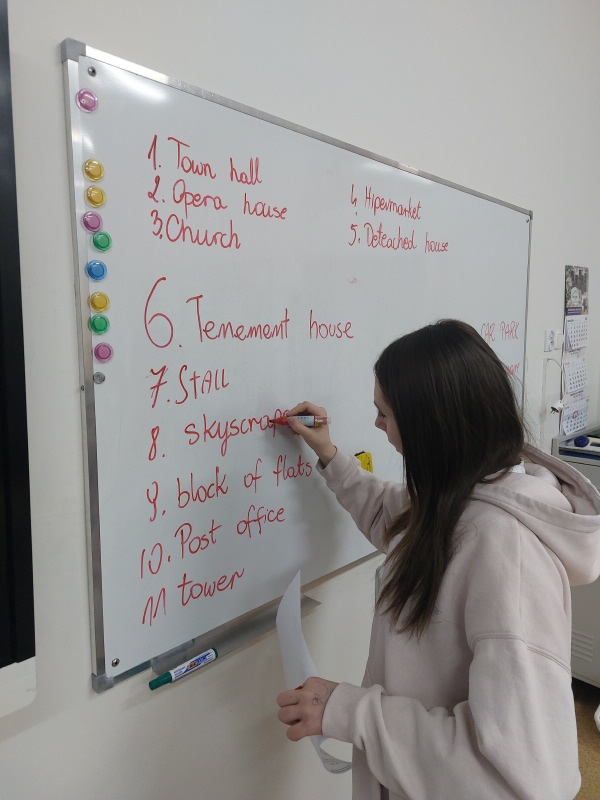 1. Town hall
2. Opera house
3. Church
4. Hipermarket
5. Deteached house
6. Tenement house
7. Stall
8. skyscrape
9. block of flats
10. Post office
11 tower
CAR PARK